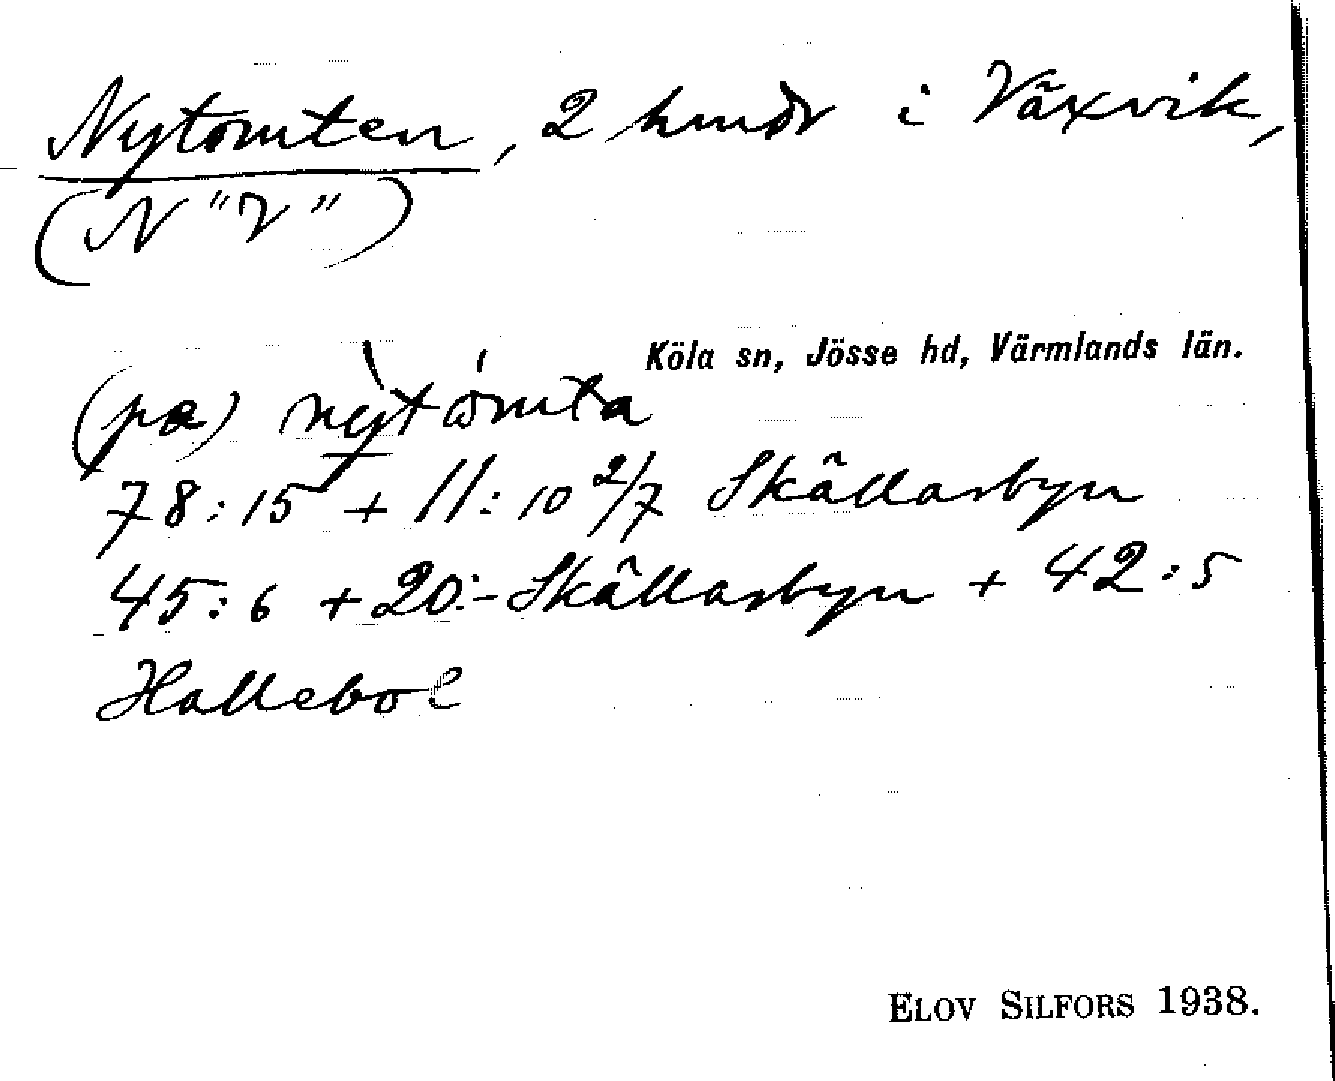 Nytomten, 2 hmdr i Växvik,
(N "V")
Köla sn, Jösse hd, Värmlands län.
(pæ) nỳtómta
78:15 + 11:10 2/7 Skållarbyn
45:6 + 20:- Skållarbyn + 42:5
Hallebol
ELOV SILFORS 1938.